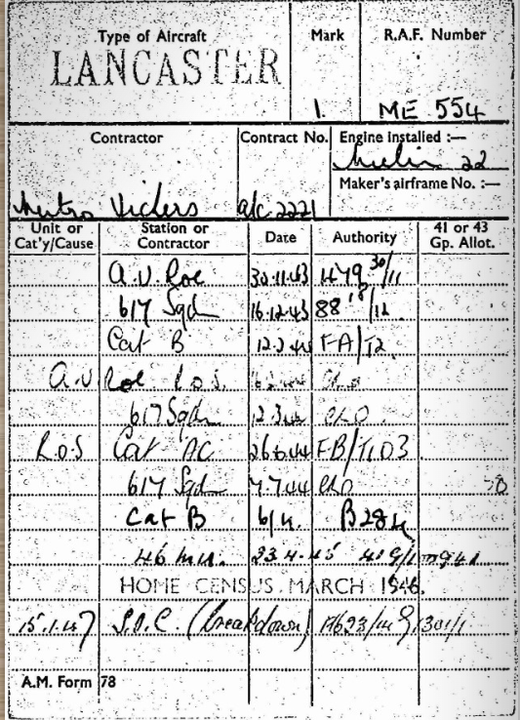 Type of Aircraft Mark R.A.F. Number
LANCASTER 1. ME 554
Contractor Contract No. Engine installed :—
Merlin 22
Maker's airframe No. :—
Metro Vickers a/c 2221
Unit or Cat'y/Cause Station or Contractor Date Authority 41 or 43 Gp. Allot.
A.V. Roe 30.11.43 30/11
617 Sqdn 16.12.43 88 18/12
Cat B FA/T2.
A.V. Roe R.O.S.
617 Sqdn
R.O.S Cat AC 26.6.44 FB/
617 Sqdn 7.7.44
Cat B 6/4.
46 M.U. 23.4.45
HOME CENSUS. MARCH 1946.
15.1.47 S.O.C. (breakdown)
A.M. Form 78